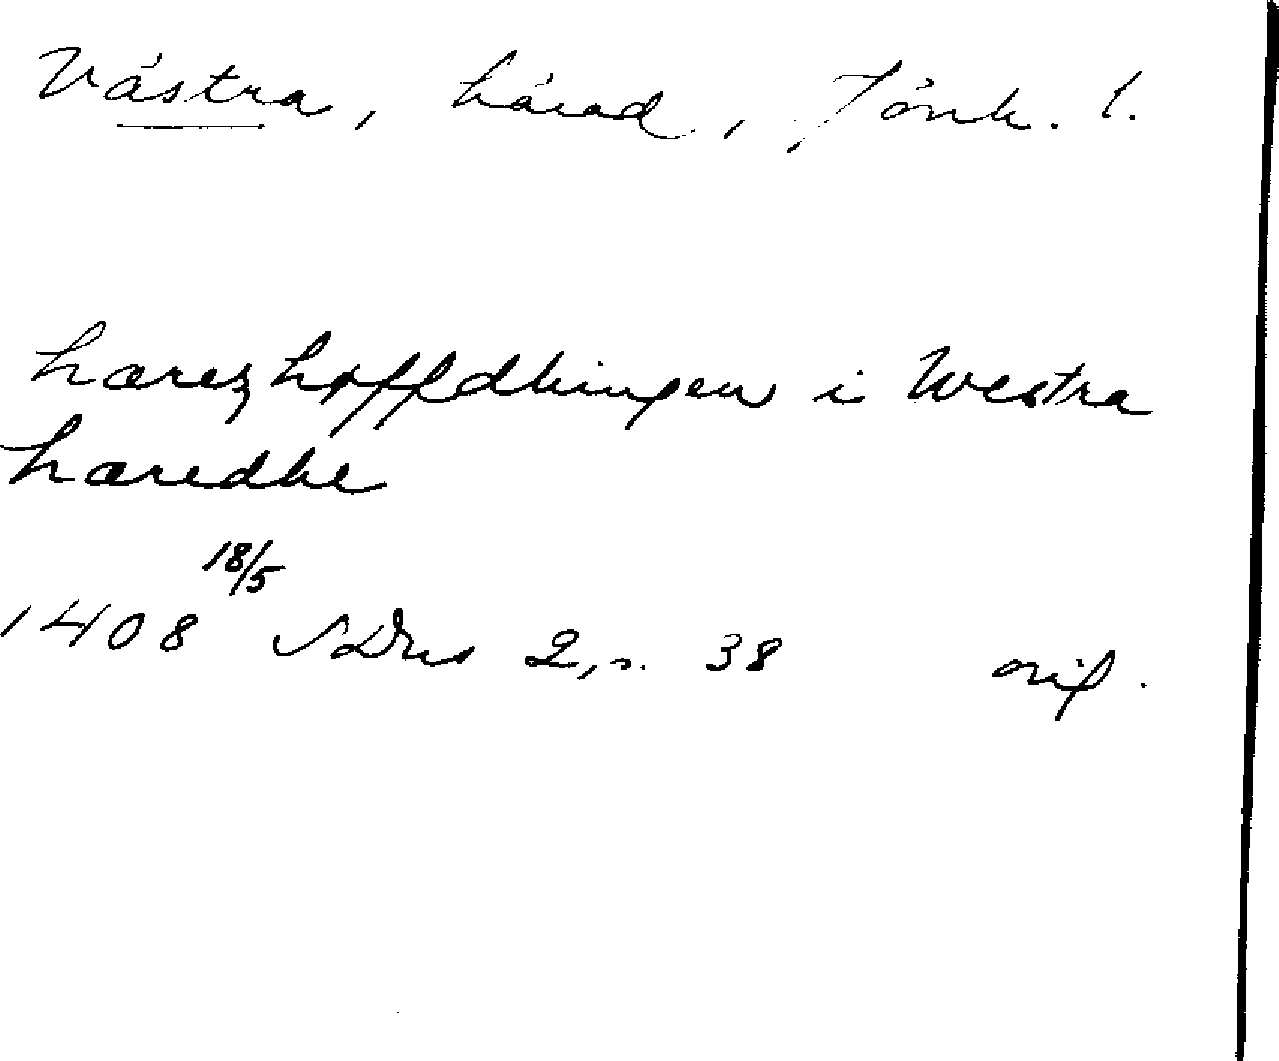 Västra, härad, Jönk. l.
hærezhøffdhingen i Westra
hæredhe
18/5
1408 SDns 2, s. 38 orig.